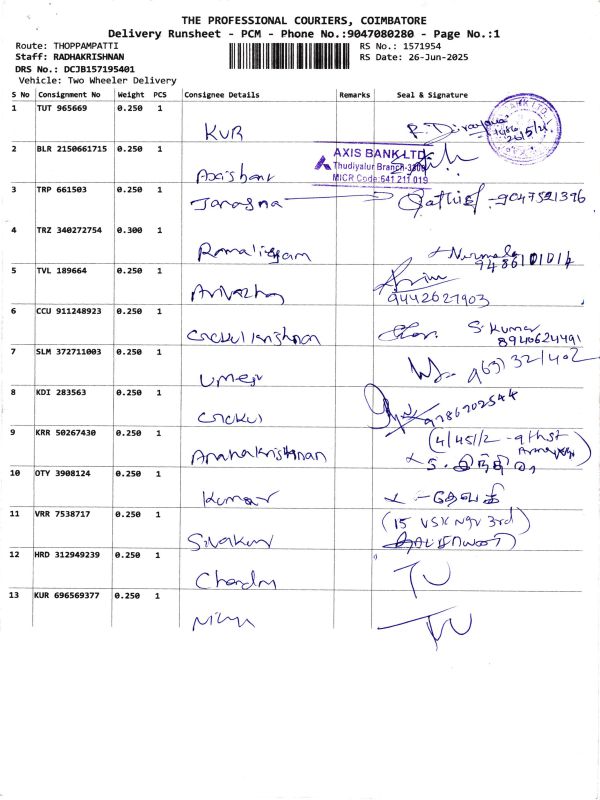 THE PROFESSIONAL COURIERS, COIMBATORE
Delivery Runsheet - PCM - Phone No.:9047080280 - Page No.:1
Route: THOPPAMPATTI
RS No.: 1571954
Staff: RADHAKRISHNAN
RS Date: 26-Jun-2025
DRS No.: DCJB157195401
Vehicle: Two Wheeler Delivery
S No Consignment No Weight PCS Consignee Details Remarks Seal & Signature
1 TUT 965669 0.250 1 KUR
2 BLR 2150661715 0.250 1 Axis bank
AXIS BANK LTD
Thudiyalur Branch
MICR Code:641 211 019
3 TRP 661503 0.250 1 9047521396
4 TRZ 340272754 0.300 1 Ramalingam Nirmala
9486101014
5 TVL 189664 0.250 1
9442627903
6 CCU 911248923 0.250 1 Gokulkrishnan S. Kumar
8940624491
7 SLM 372711003 0.250 1
8 KDI 283563 0.250 1 Gokul 9786202544
9 KRR 50267430 0.250 1
10 OTY 3908124 0.250 1 Kumar தேவகி
11 VRR 7538717 0.250 1 Sivakumar (15 VSK Ngr 3rd)
12 HRD 312949239 0.250 1 TU
13 KUR 696569377 0.250 1 TU